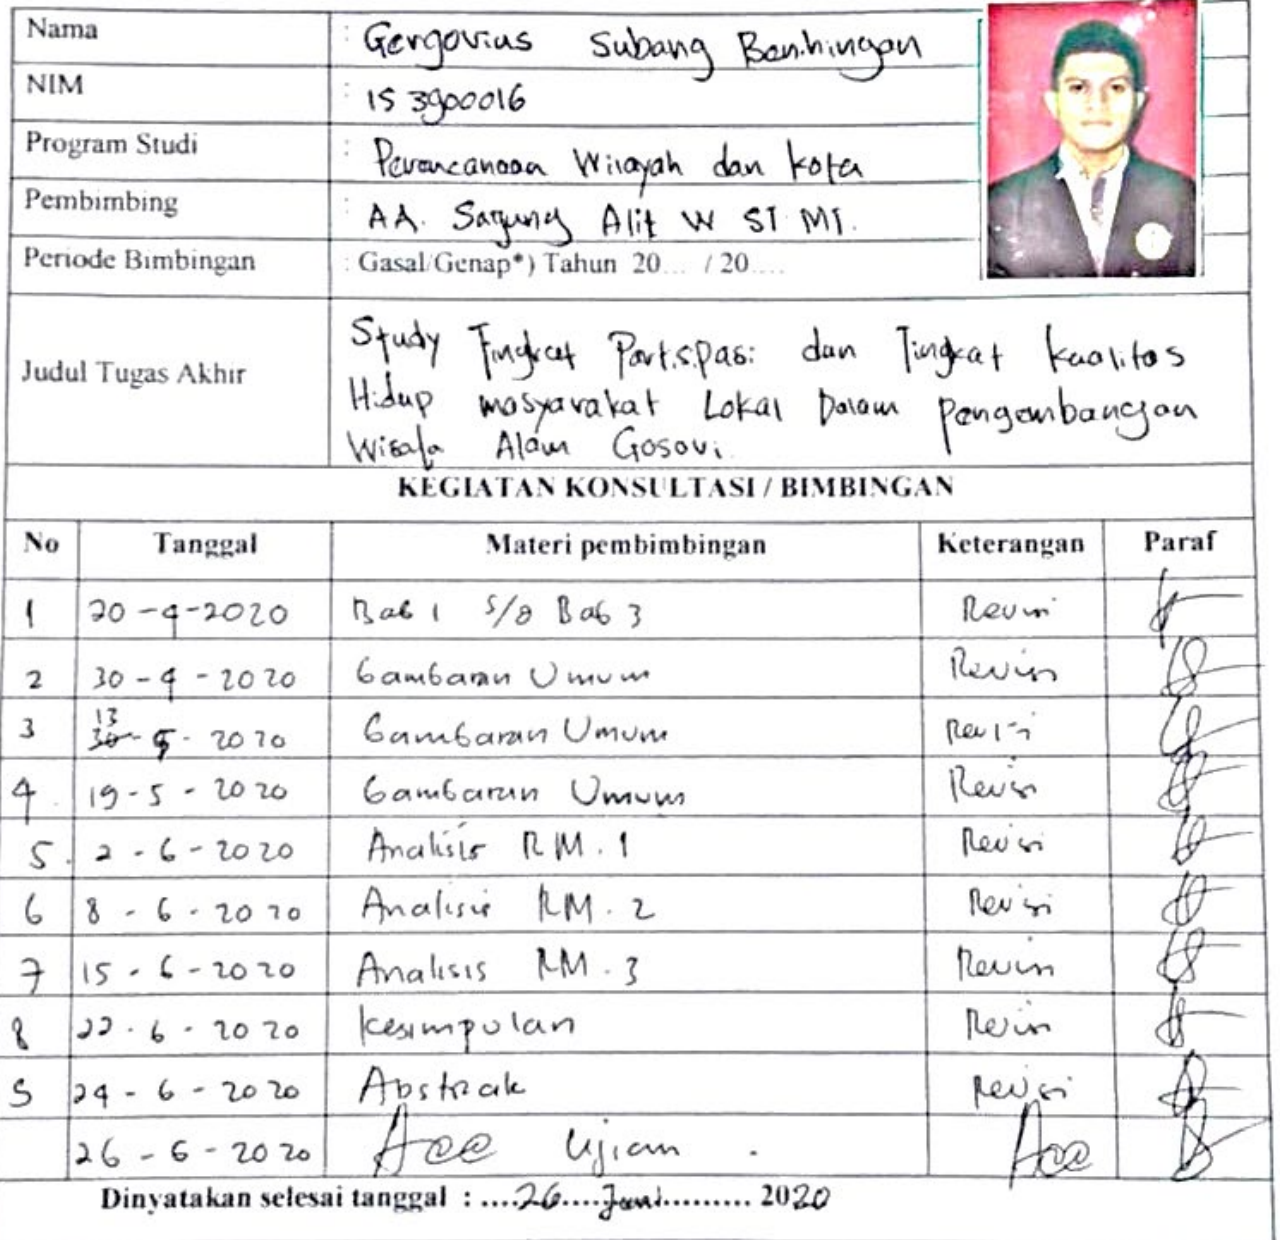 Nama : Gergovius Subang Benhingan
NIM : 153900016
Program Studi : Perencanaan Wilayah dan Kota
Pembimbing : AA. Sagung Alit W ST. MT.
Periode Bimbingan : Gasal/Genap*) Tahun 20... / 20....
Judul Tugas Akhir
Study Tingkat Partisipasi dan Tingkat kualitas
Hidup masyarakat Lokal Dalam pengembangan
Wisata Alam Gosari.
KEGIATAN KONSULTASI / BIMBINGAN
No Tanggal Materi pembimbingan Keterangan Paraf
1 20-4-2020 Bab 1 s/d Bab 3 Revisi
2 30-4-2020 Gambaran Umum Revisi
3 13-5-2020 Gambaran Umum Revisi
4. 19-5-2020 Gambaran Umum Revisi
5. 2-6-2020 Analisis RM.1 Revisi
6 8-6-2020 Analisis RM.2 Revisi
7 15-6-2020 Analisis RM.3 Revisi
8 22-6-2020 Kesimpulan Revisi
9 24-6-2020 Abstrak Revisi
26-6-2020 Acc Ujian. Acc
Dinyatakan selesai tanggal : ....26....Juni.......... 2020